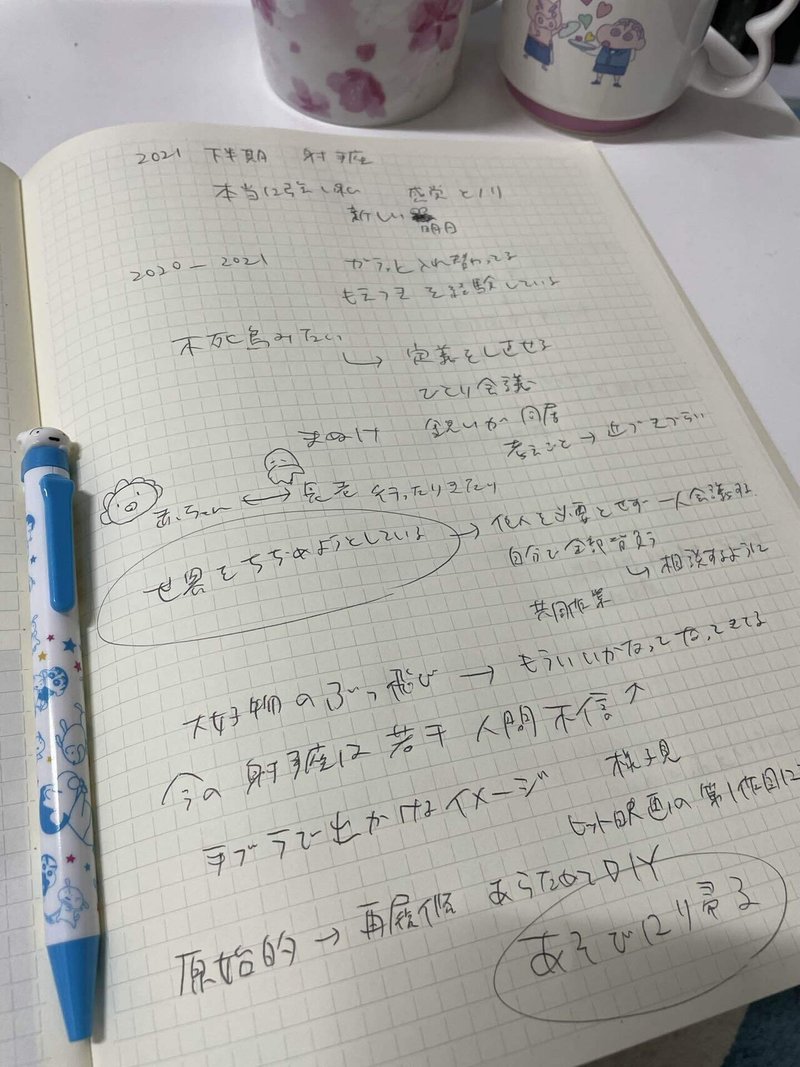 2021 下半期 射手座
本当に 感覚となり
新しい 明日
2020-2021 がらっと入れ替わってる
を経験している
不死鳥みたい → 定義を
ひとり会議
まぬけ 鋭いが同居
考えごと →
赤ちゃん ↔ 長老 行ったりきたり
世界をちぢめようとしている → 他人を必要とせず 一人会議する
自分で全部背負う
↳ 相談するように
共同作業
大好物のぶっ飛び → もういいかなってなってきてる
今の射手座は若干人間不信↑
手ブラで出かけるイメージ 様子見
ヒット映画の第1作目に
原始的 → 再評価 あらためてDIY